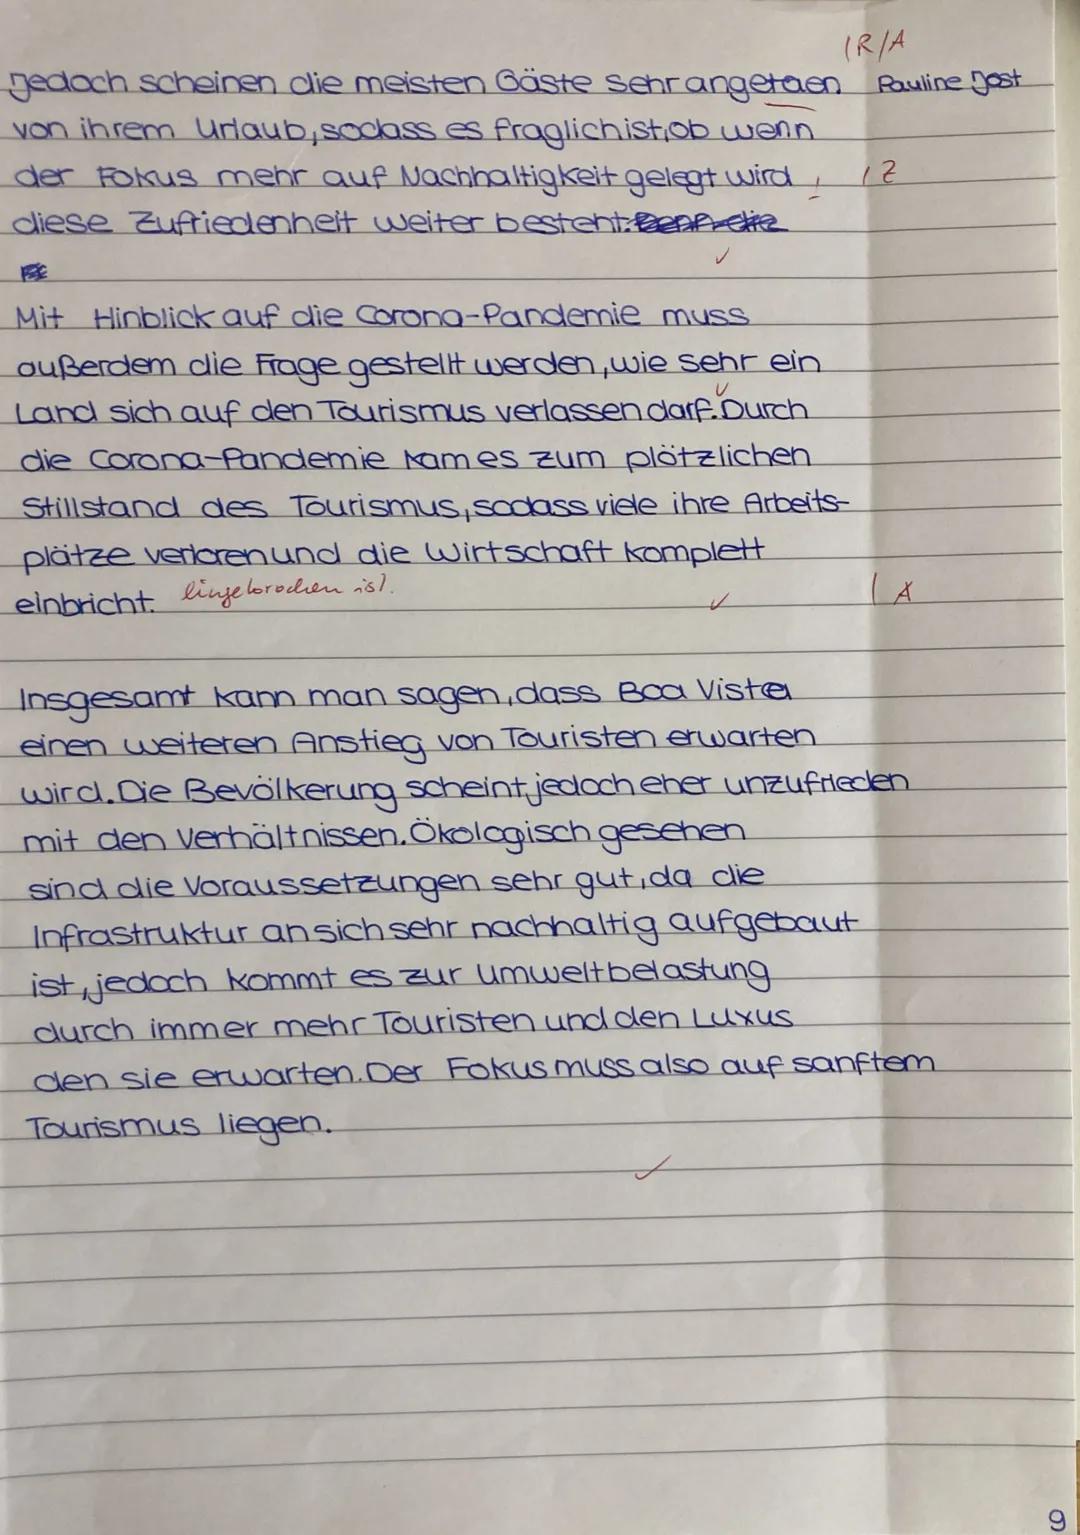 |R/A
Jedoch scheinen die meisten Gäste sehr angetaen Pauline Jost
von ihrem Urlaub, sodass es fraglich ist, ob wenn
der Fokus mehr auf Nachhaltigkeit gelegt wird, |Z
diese Zufriedenheit weiter besteht. Denn die
Mit Hinblick auf die Corona-Pandemie muss
außerdem die Frage gestellt werden, wie sehr ein
Land sich auf den Tourismus verlassen darf. Durch
die Corona-Pandemie kam es zum plötzlichen
Stillstand des Tourismus, sodass viele ihre Arbeits-
plätze verloren und die Wirtschaft komplett
einbricht. eingebrochen ist. | A
Insgesamt kann man sagen, dass Boa Vista
einen weiteren Anstieg von Touristen erwarten
wird. Die Bevölkerung scheint jedoch eher unzufrieden
mit den Verhältnissen. Ökologisch gesehen
sind die Voraussetzungen sehr gut, da die
Infrastruktur an sich sehr nachhaltig aufgebaut
ist, jedoch kommt es zur Umweltbelastung
durch immer mehr Touristen und den Luxus
den sie erwarten. Der Fokus muss also auf sanftem
Tourismus liegen.
9